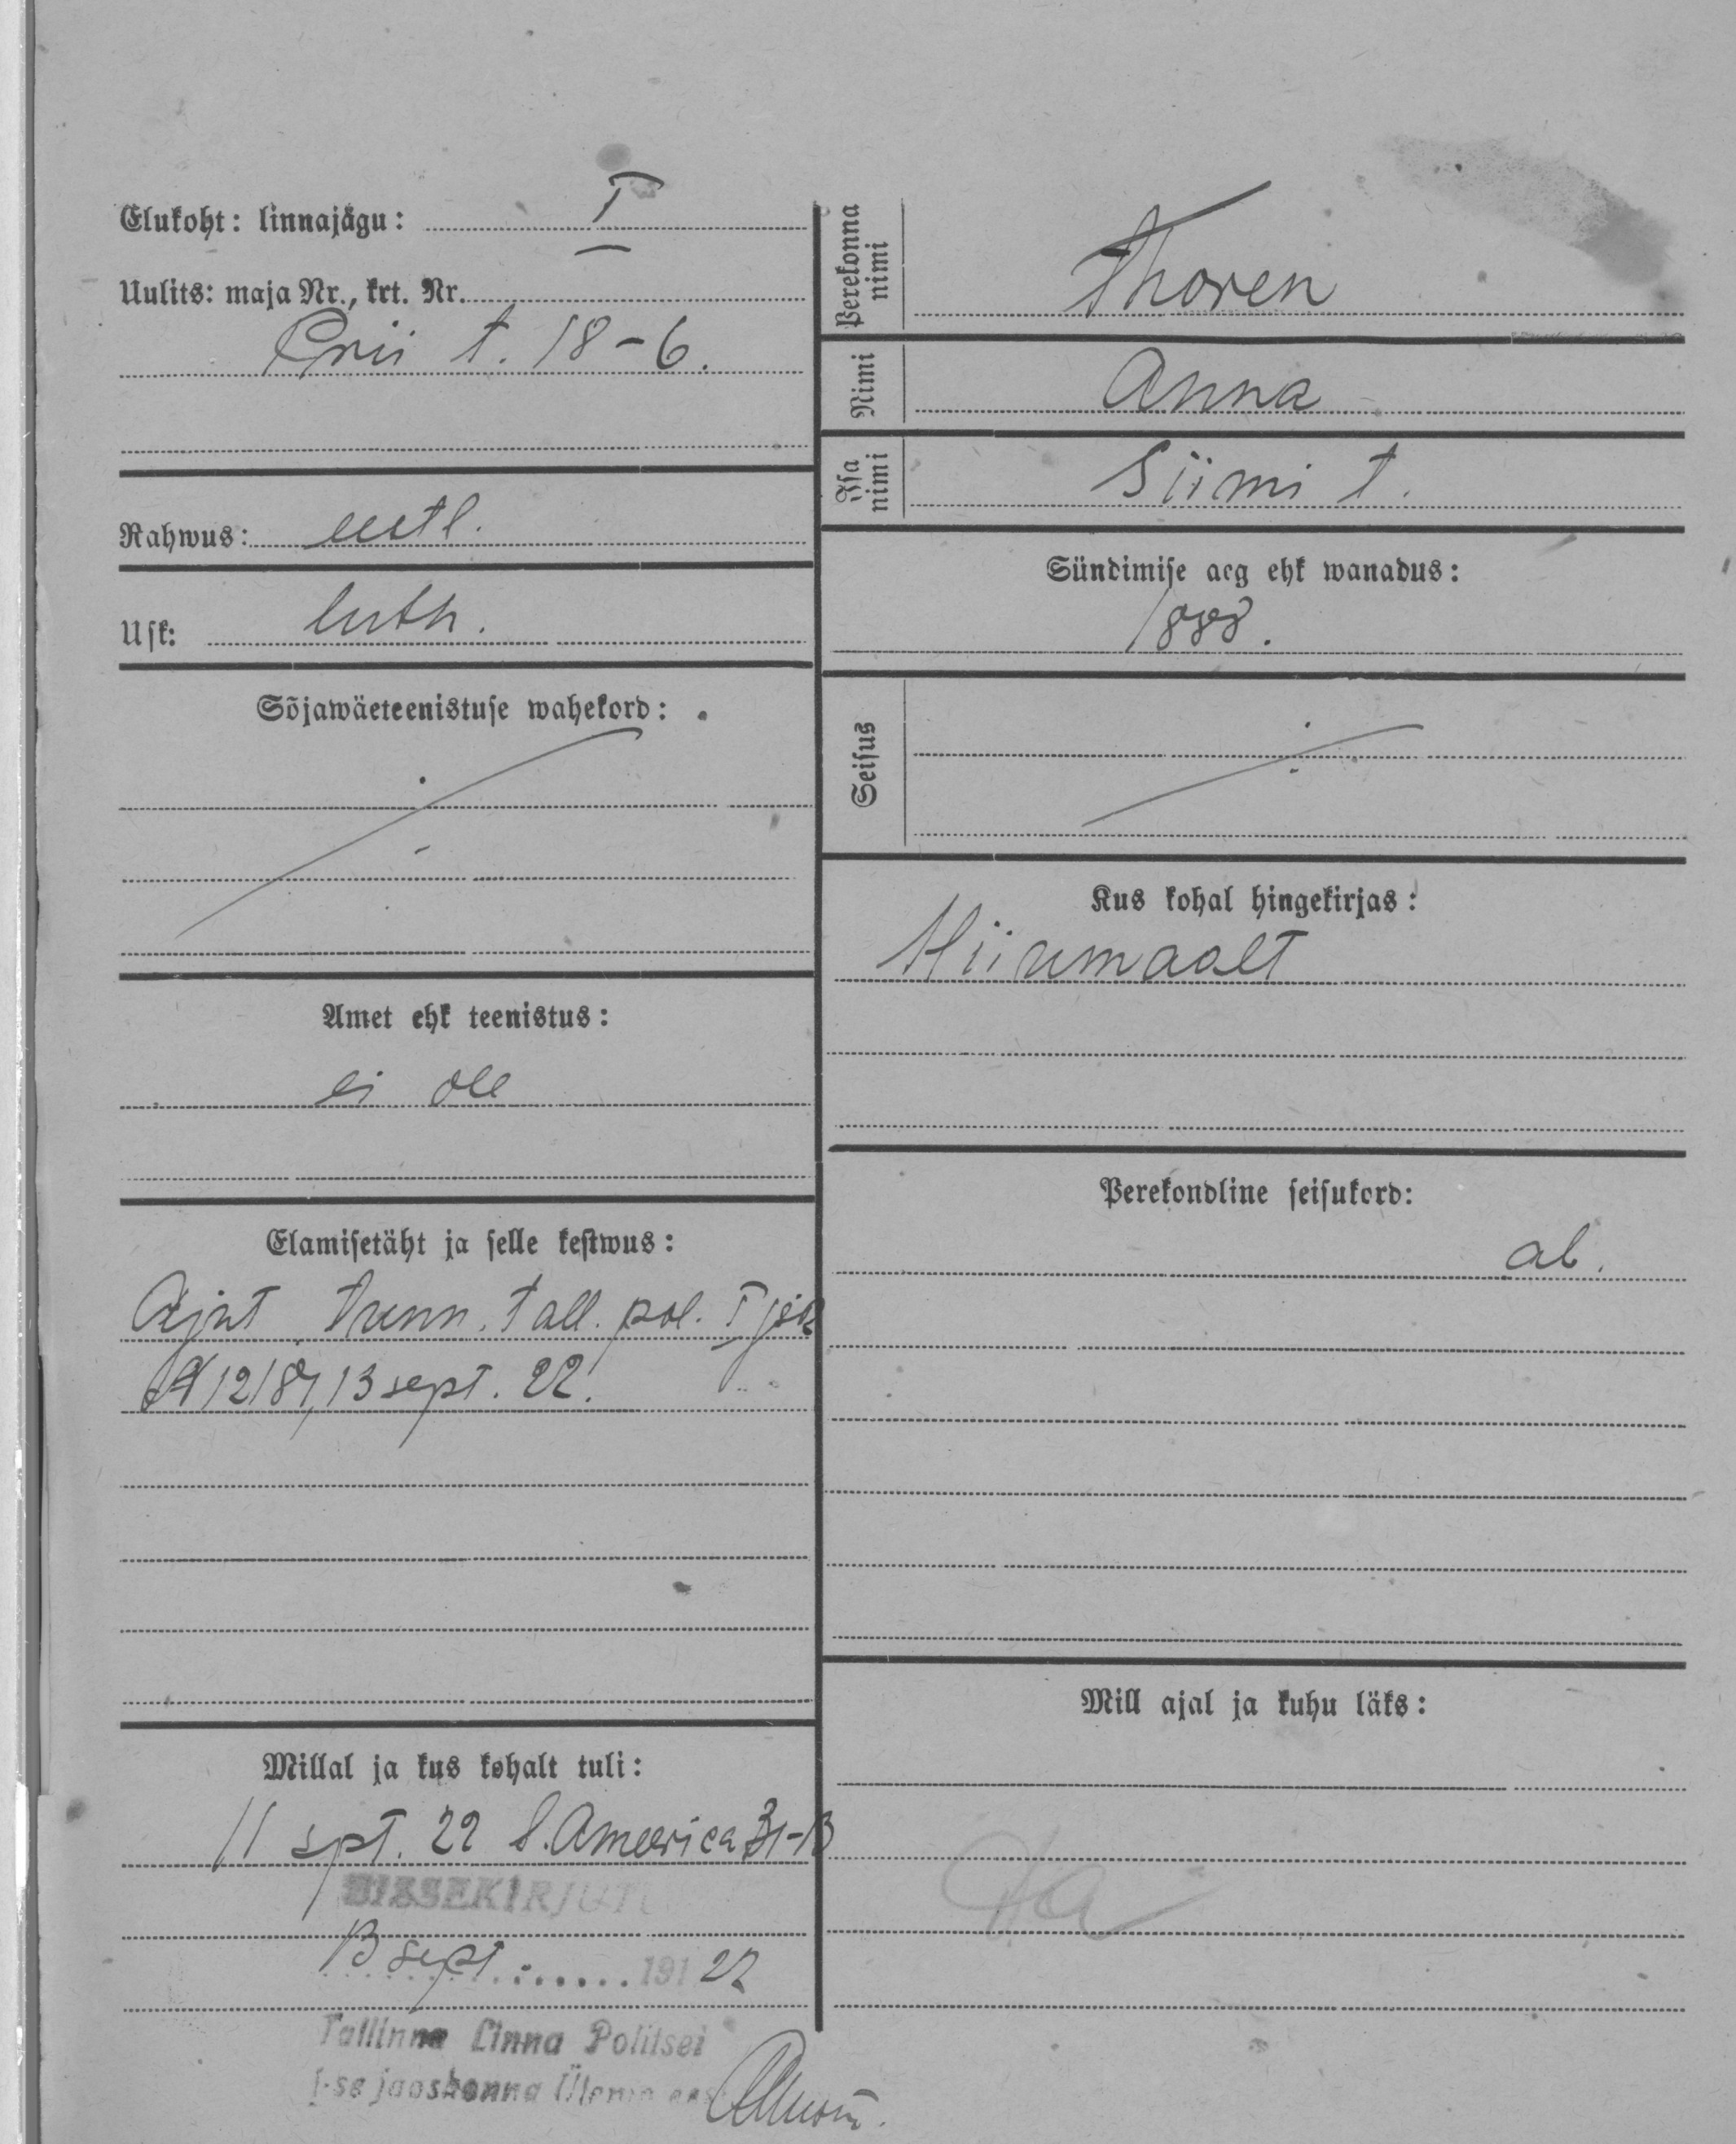 Elukoht: linnajagu: I
Uulits: maja Nr., krt. Nr.
Prii t. 18-6.
Rahwus: eestl.
Usk: luth.
Sõjawäeteenistuse wahekord:
Amet ehk teenistus:
ei ole
Elamisetäht ja selle kestwus:
Ajut. tunn. Tall. pol. I jsk
13 sept. 22.
Millal ja kus kohalt tuli:
11 spt. 22 Ameerica
SISSEKIRJUT
13 sept 191 22
Tallinna Linna Politsei
I-se jaoskonna Ülema
Perekonna
nimi
Thoren
Nimi
Anna
Isa
nimi
Siimi t.
Sündimise aeg ehk wanadus:
1888.
Seisus
Kus kohal hingekirjas:
Hiiumaalt
Perekondline seisukord:
ab.
Mill ajal ja kuhu läks: